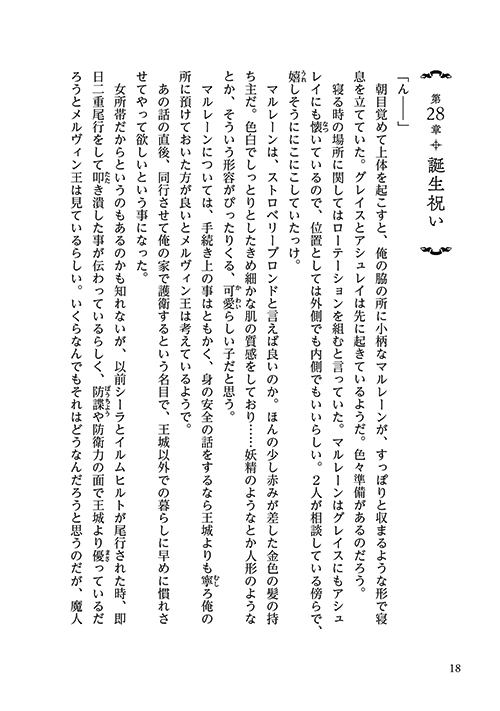 第28章 誕生祝い
「ん――」
　朝目覚めて上体を起こすと、俺の脇の所に小柄なマルレーンが、すっぽりと収まるような形で寝
息を立てていた。グレイスとアシュレイは先に起きているようだ。色々準備があるのだろう。
　寝る時の場所に関してはローテーションを組むと言っていた。マルレーンはグレイスにもアシュ
レイにも懐いているので、位置としては外側でも内側でもいいらしい。2人が相談している傍らで、
嬉しそうににこにこしていたっけ。
　マルレーンは、ストロベリーブロンドと言えば良いのか。ほんの少し赤みが差した金色の髪の持
ち主だ。色白でしっとりとしたきめ細かな肌の質感をしており……妖精のようなとか人形のような
とか、そういう形容がぴったりくる、可愛らしい子だと思う。
　マルレーンについては、手続き上の事はともかく、身の安全の話をするなら王城よりも寧ろ俺の
所に預けておいた方が良いとメルヴィン王は考えているようで。
　あの話の直後、同行させて俺の家で護衛するという名目で、王城以外での暮らしに早めに慣れさ
せてやって欲しいという事になった。
　女所帯だからというのもあるのかも知れないが、以前シーラとイルムヒルトが尾行された時、即
日二重尾行をして叩き潰した事が伝わっているらしく、防諜や防衛力の面で王城より優っているだ
ろうとメルヴィン王は見ているらしい。いくらなんでもそれはどうなんだろうと思うのだが、魔人
18